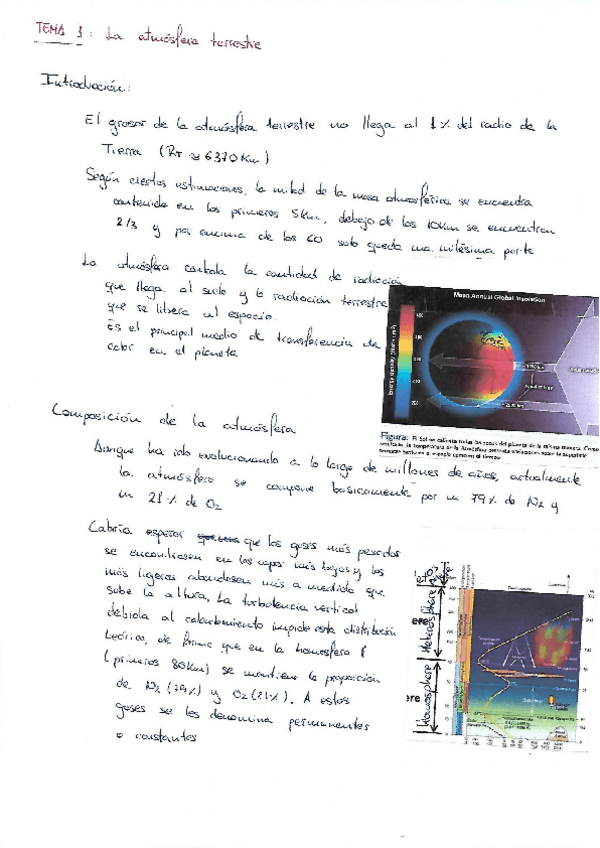 TEMA 1: La atmósfera terrestre
Introducción:
El grosor de la atmósfera terrestre no llega al 1% del radio de la
Tierra (RT ≈ 6370 Km)
Según ciertas estimaciones, la mitad de la masa atmosférica se encuentra
contenida en los primeros 5km, debajo de los 10km se encuentran
2/3 y por encima de los 60 solo queda una milésima parte
La atmósfera controla la cantidad de radiación
que llega al suelo y la radiación terrestre
que se libera al espacio.
Es el principal medio de transferencia de
calor en el planeta
Mean Annual Global Insolation
Figura:
Composición de la atmósfera
Aunque ha ido evolucionando a lo largo de millones de años, actualmente
la atmósfera se compone basicamente por un 79% de N2 y
un 21% de O2
Cabría esperar que los gases más pesados
se encontrasen en las capas más bajas y los
más ligeros abundasen más a medida que
sube la altura. La turbulencia vertical
debida al calentamiento impide esta distribución
teórica, de forma que en la homosfera
(primeros 80km) se mantiene la proporción
de N2 (79%) y O2 (21%). A estos
gases se les denomina permanentes
o constantes
Homosphere
Heterosphere